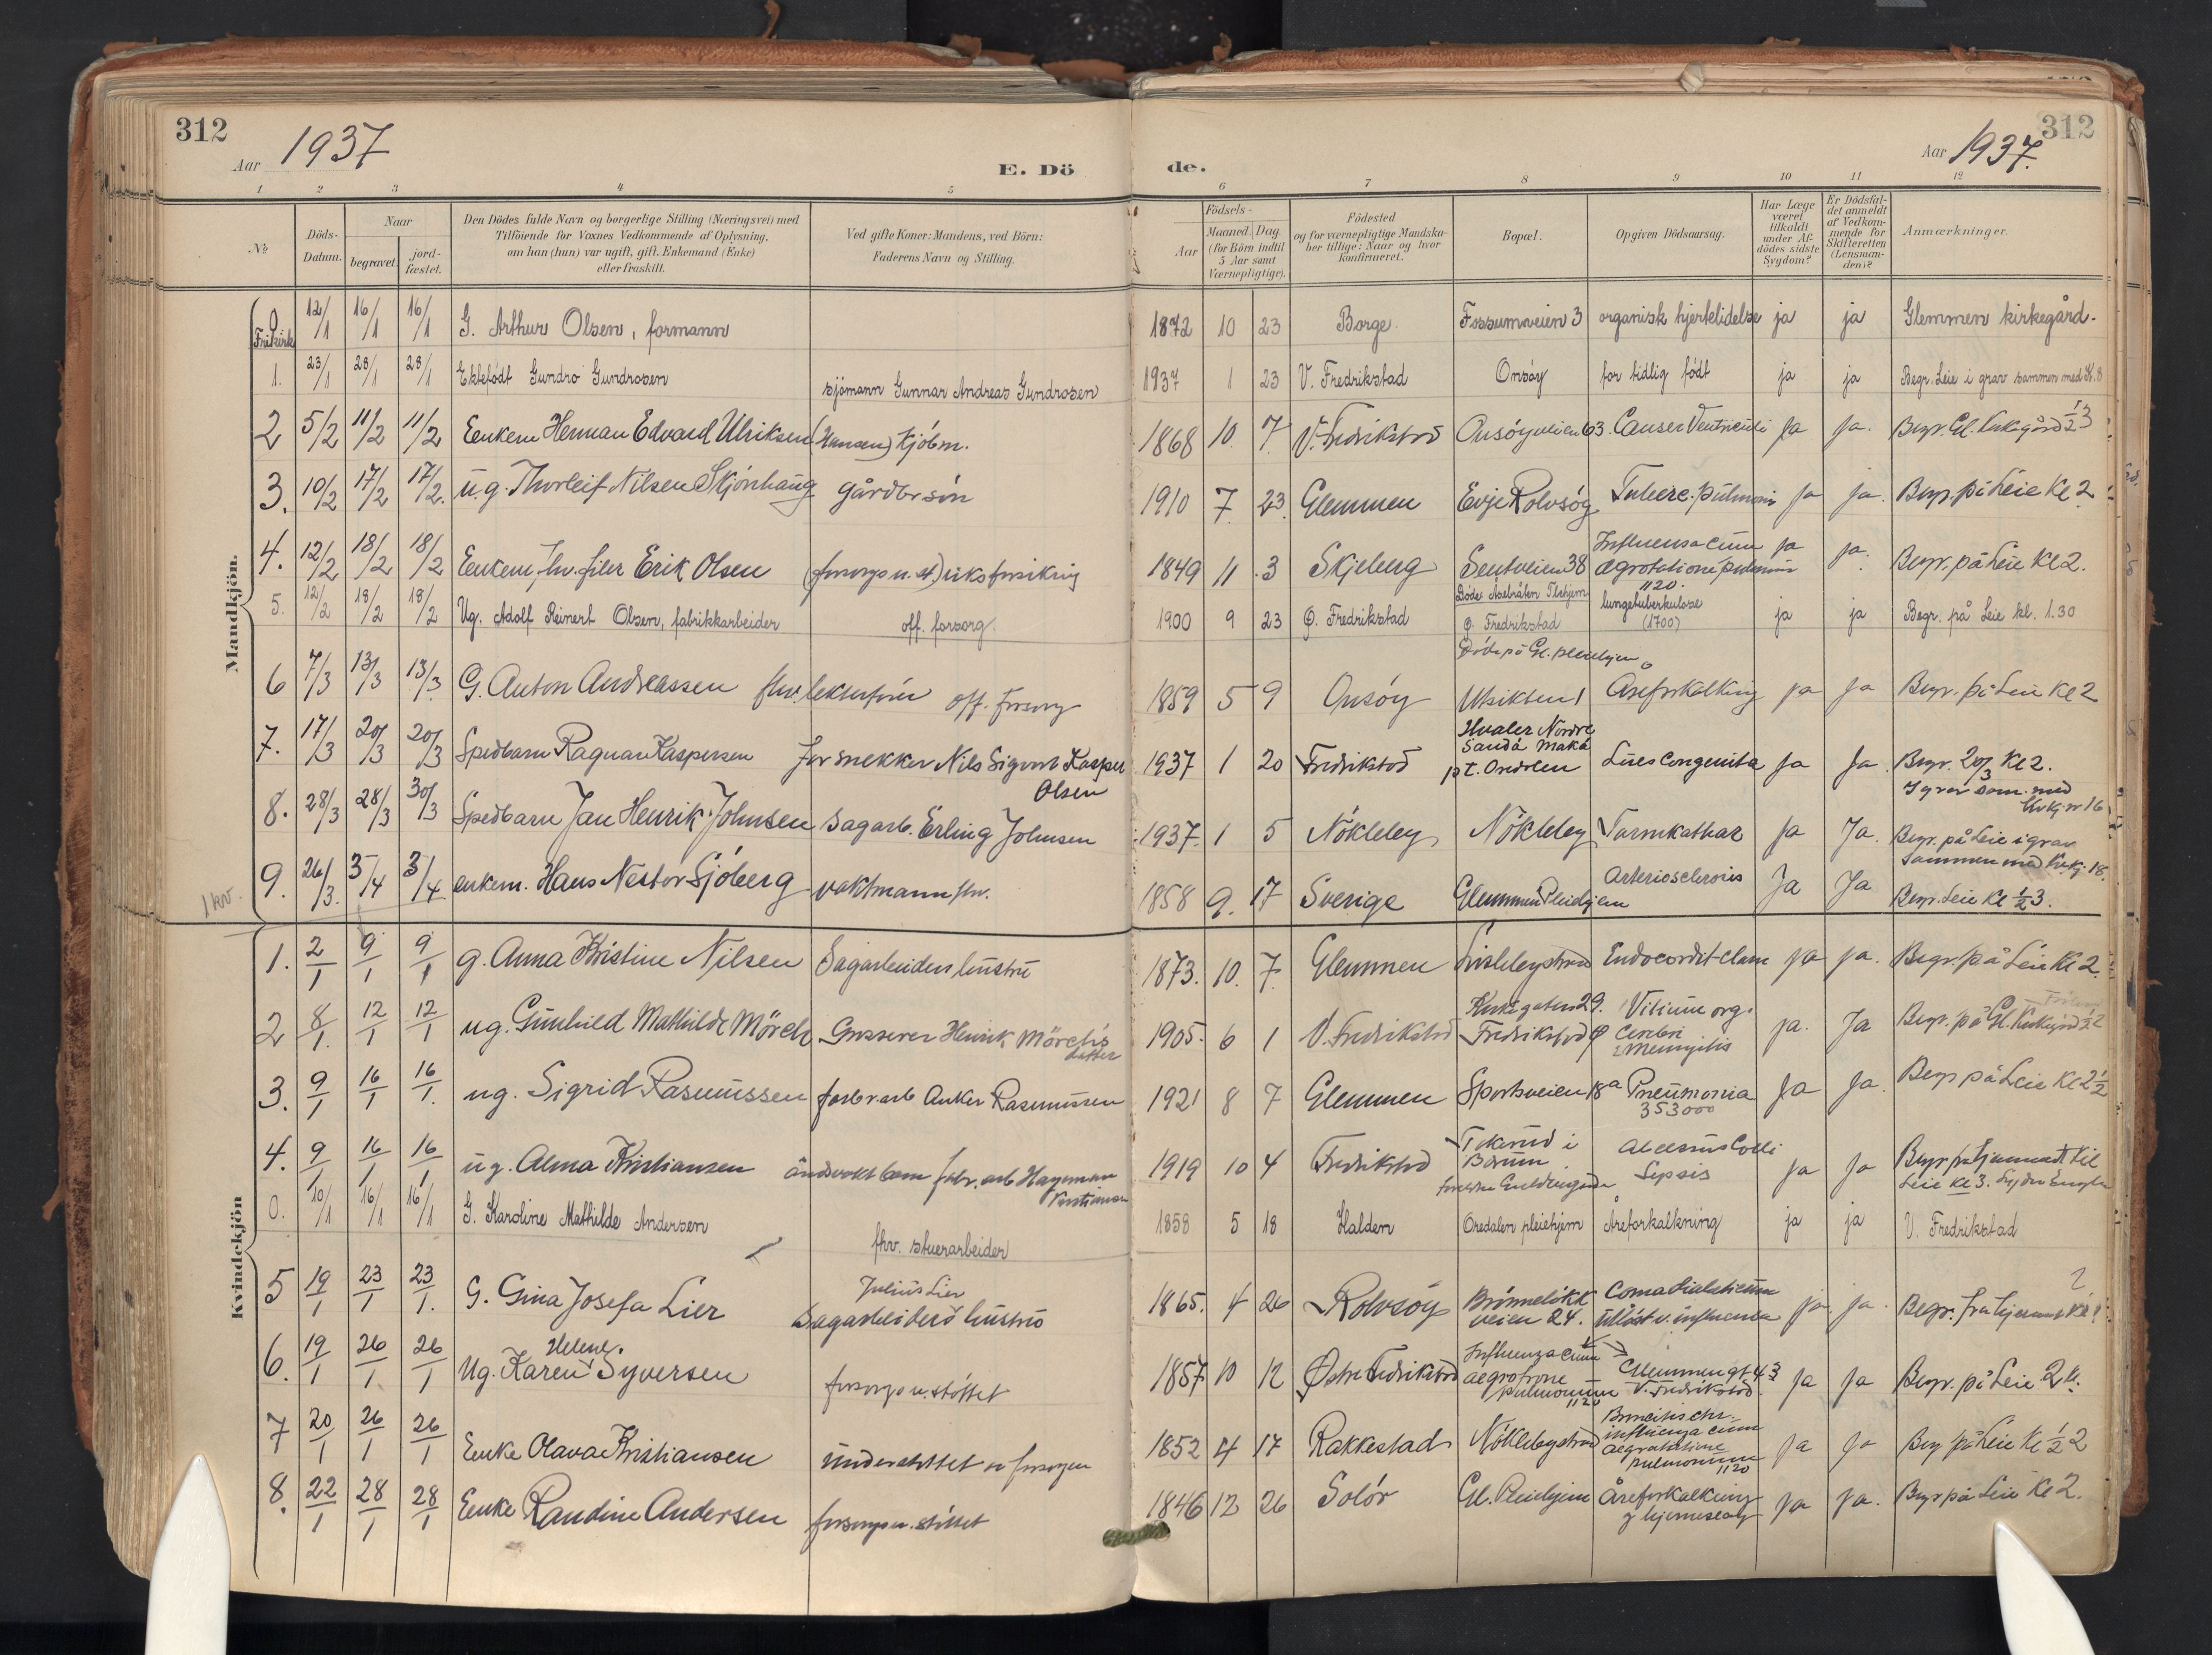 312
Aar 1937
E. Dö
de.
Aar 1937.
312
1 2 3 4 5 6 7 8 9 10 11 12
No
Döds-Datum.
Naar
begravet.
jord-fæstet.
Den Dödes fulde Navn og borgerlige Stilling (Næringsvei) med
Tilföiende for Voxnes Vedkommende af Oplysning,
om han (hun) var ugift, gift, Enkemand (Enke)
eller fraskilt.
Ved gifte Koner: Mandens, ved Börn:
Faderens Navn og Stilling.
Aar
Födsels-
Maaned. Dag.
(for Börn indtil
5 Aar samt
Værnepligtige).
Födested
og for værnepligtige Mandska-
ber tillige: Naar og hvor
konfirmeret.
Bopæl.
Opgiven Dödsaarsag.
Har Læge
været
tilkaldt
under Af-
dödes sidste
Sygdom?
Er Dödsfal-
det anmeldt
af Vedkom-
mende for
Skifteretten
(Lensman-
den)?
Anmærkninger.
Mandkjön.
0 Frikirk 12/1 16/1 16/1 G. Arthur Olsen, formann 1872 10 23 Borge Fossumveien 3 organisk hjertelidelse ja ja Glemmen kirkegård.
1. 23/1 28/1 28/1 Ektefödt Gundro Gundrosen sjömann Gunnar Andreas Gundrosen 1937 1 23 V. Fredrikstad Onsöy for tidlig födt ja ja Begr. Leie i grav sammen med K. 8
2 5/2 11/2 11/2 Enkem Herman Edvard Ulriksen (Hansen) kjöbm. 1868 10 7 V. Fredrikstad Onsöyveien 63. Cancer Ventriculi ja ja. Begr. Gl. Kirkegård 1/2 3
3. 10/2 17/2 17/2. ug. Thorleif Nilsen Skjönhaug gårdbr sön 1910 7. 23. Glemmen Evje Rolvsöy Tuberc. pulmonis ja ja. Begr. på Leie Kl 2
4. 12/2 18/2 18/2 Enkem, fhv. filer Erik Olsen (forsorgs u. st) riksforsikring 1849 11 3 Skjeberg Sentveien 38 Influensa cum ægrotatione pulmonis 1120. ja ja. Begr. på Leie Kl 2.
5. 12/2 18/2 18/2 Ug. Adolf Reinert Olsen, fabrikkarbeider off. forsorg. 1900 9 23 Ø. Fredrikstad Ø. Fredrikstad lungetuberkulose (1700) ja ja Begr. på Leie kl. 1.30
6 7/3 13/3 13/3 G. Anton Andreassen fhv. lekterfører off. forsorg 1859 5 9 Onsöy Döde på Gl. pleiehjem Utsikten 1 Areforkalkning ja ja Begr. på Leie Kl 2
7. 17/3 20/3 20/3 Spedbarn Ragnar Kaspersen for snekker Nils Sigurd Kasper Olsen 1937 1 20 Fredrikstad Hvaler Nordre Sandö p.t. Lues Congenita ja ja. Begr. 20/3 Kl 2. I grav sam. med Kvkj nr 16
8. 28/3 28/3 30/3 Spedbarn Jan Henrik Johnsen sagarb. Erling Johnsen 1937. 1 5 Nökleby Nökleby Tarmkathar ja Ja. Begr. på Leie i grav sammen med Kvkj. 18.
9. 26/3. 3/4 3/4 enkem. Hans Nestor Sjöberg vaktmann fhv. 1858 9. 17 Sverige Glemmen Pleiehjem Arteriosclerosis Ja Ja Begr. Leie Kl 1/2 3.
1 kv.
Kvindekjön
1. 2/1 9/1 9/1 g. Anna Kristine Nilsen Sagarbeiders hustru 1873. 10. 7. Glemmen ja ja. Begr. på Leie Kl 2.
2 8/1. 12/1 12/1 ug. Gunhild Mathilde Mörch Grosserer Henrik Mörch's datter 1905. 6 1 V. Fredrikstad Fredrikstad Ø Vitium org. Cerebri Meningitis ja. Ja Begr. på Gl. Kirkegård 1/2 2
3. 9/1 16/1 16/1. ug. Sigrid Rasmussen fabr arb Anker Rasmussen 1921 8 7 Glemmen Sportsveien 18a Pneumonia 353000 Ja ja. Begr på Leie Kl 2 1/2
4. 9/1 16/1 16/1 ug. Alma Kristiansen åndsvakt barn fabr. arb Hageman Kristiansen 1919 10 4 Fredrikstad Tokerud i Bærum Abcessus Colli Sepsis ja ja Leie kl 3.
0. 10/1 16/1 16/1 G. Karoline Mathilde Andersen fhv. stuerarbeider 1858 5 18 Halden Oredalen pleiehjem Åreforkalkning ja ja V. Fredrikstad
5 19/1 23/1 23/1. G. Gina Josefa Lier Julius Lier Sagarbeiders hustru 1865. 4 26 Rolvsöy Brönnelökkveien 24. Coma diabeticum utlöst v. influensa ja ja. Begr. fra hjemmet Kl
6. 19/1 26/1 26/1 Ug. Karen Helene Syversen forsorgs u. stöttet 1857 10 12 Östre Fredrikstad Influenza cum aegrotione pulmonum 1120 Glemmengt 43 V. Fredrikstad. ja ja Begr. på Leie 2
7 20/1 26/1 26/1 Enke Olava Kristiansen understöttet av forsorgen 1852 4 17 Rakkestad Nöklebystrand Broncitis chr. influenza cum aegrotatione pulmonum 1120 ja ja Begr på Leie Kl 1/2 2
8. 22/1 28/1 28/1 Enke Randine Andersen forsorgs u. stöttet 1846 12 26 Solör Gl. Pleiehjem Åreforkalkning ja ja. Begr på Leie Kl 2.